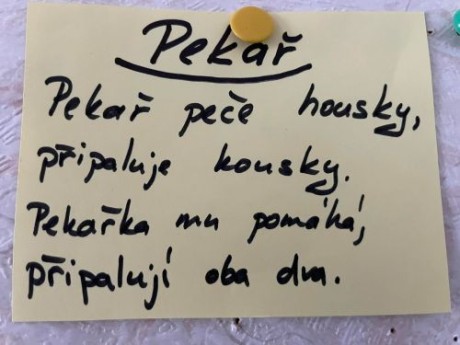 Pekař
Pekař peče housky,
připaluje kousky.
Pekařka mu pomáhá,
připalují oba dva.